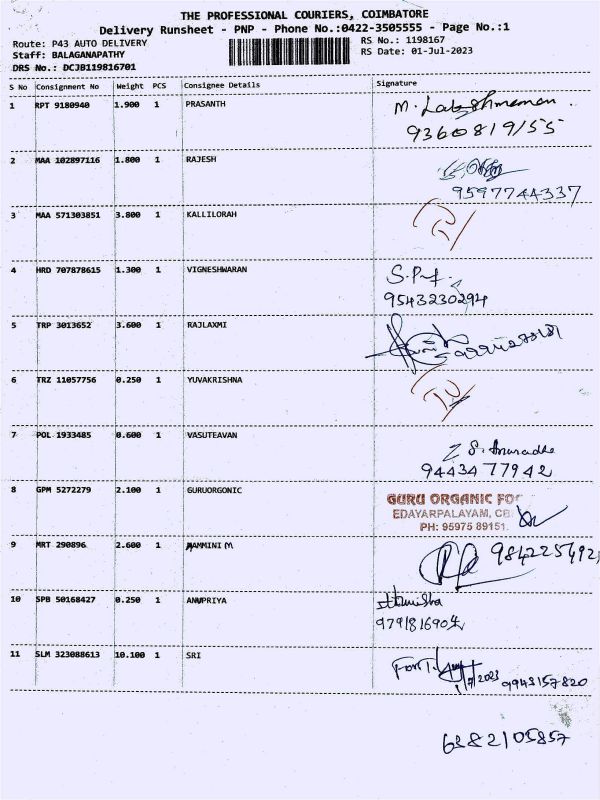 THE PROFESSIONAL COURIERS, COIMBATORE
Delivery Runsheet - PNP - Phone No.:0422-3505555 - Page No.:1
Route: P43 AUTO DELIVERY
RS No.: 1198167
Staff: BALAGANAPATHY
RS Date: 01-Jul-2023
DRS No.: DCJB119816701
S No Consignment No Weight PCS Consignee Details Signature
1 RPT 9180940 1.900 1 PRASANTH M. Lakshmanan
9360819155
2 MAA 102897116 1.800 1 RAJESH
9597744337
3 MAA 571303851 3.800 1 KALLILORAH
4 HRD 707878615 1.300 1 VIGNESHWARAN
9543230294
5 TRP 3013652 3.600 1 RAJLAXMI
6 TRZ 11057756 0.250 1 YUVAKRISHNA
7 POL 1933485 0.600 1 VASUTEAVAN S. Anuradha
9443477942
8 GPM 5272279 2.100 1 GURUORGONIC GURU ORGANIC FO
EDAYARPALAYAM, CB
PH: 95975 89151.
9 MRT 290896 2.600 1 MAMMINI M 984225492
10 SPB 50168427 0.250 1 ANUPRIYA
11 SLM 323088613 10.100 1 SRI For
/7/2023 9943157820
6382105857